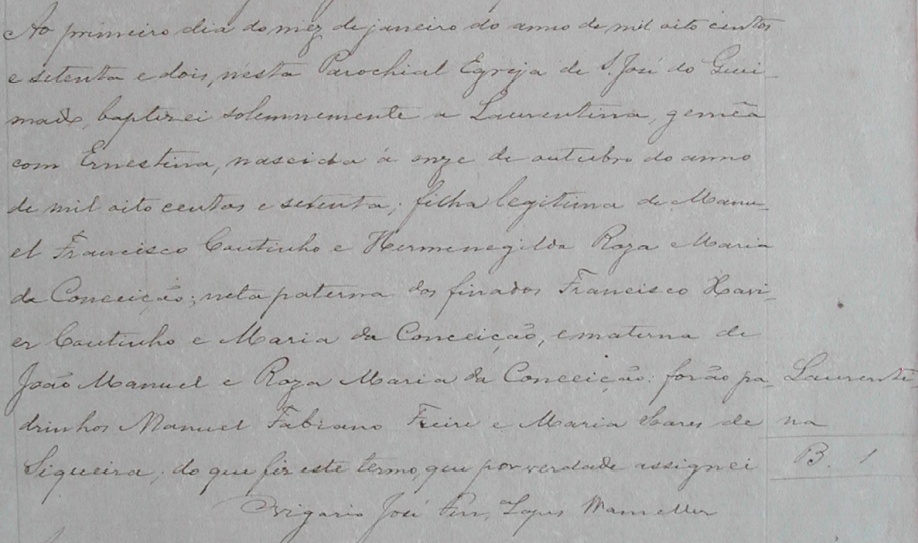 Ao primeiro dia do mez de janeiro do anno de mil oito centos
e setenta e dois, nesta Parochial Egreja de S. José do Guri-
, baptizei solemnemente a Laurentina, gemêa
com Ernestina, nascida á onze de outubro do anno
de mil oito centos e setenta; filha legitima de Manu-
el Francisco Coutinho e Hermenegilda Roza e Maria
da Conceição; neta paterna dos finados Francisco Xavi-
er Coutinho e Maria da Conceição, e materna de
João Manuel e Roza Maria da Conceição: forão pa-
drinhos Manuel Fabiano Freire e Maria de
Siqueira; do que fiz este termo, que por verdade assignei
O vigario José Lopes
Laurenti-
na
B. 1